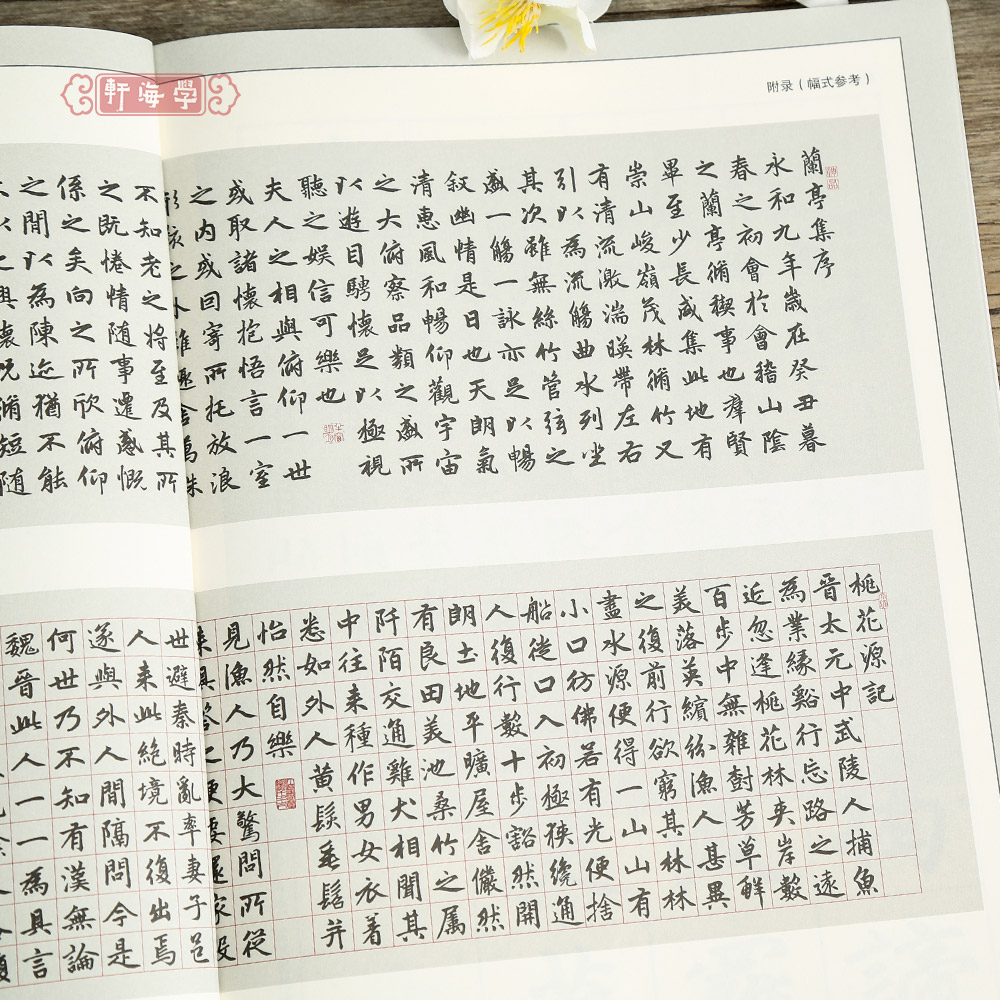 軒海學
附录（幅式参考）
蘭亭集序
永和九年歲在癸丑暮
春之初會於會稽山陰
之蘭亭脩稧事也羣賢
畢至少長咸集此地有
崇山峻嶺茂林脩竹又
有清流激湍暎帶左右
引以為流觴曲水列坐
其次雖無絲竹管弦之
盛一觴一詠亦足以暢
叙幽情是日也天朗氣
清惠風和暢仰觀宇宙
之大俯察品類之盛所
以遊目騁懷足以極視
聽之娛信可樂也
夫人之相與俯仰一世
或取諸懷抱悟言一室
之內或因寄所托放浪
之外雖趣舍萬殊
不知老之將至及其所
之既惓情随事遷感慨
係之矣向之所欣俯仰
之間以為陳迹猶不能
以之興懷况脩短随
桃花源記
晉太元中武陵人捕魚
為業緣谿行忘路之遠
近忽逢桃花林夾岸數
百步中無雜樹芳草鮮
美落英繽紛漁人甚異
之復前行欲窮其林林
盡水源便得一山山有
小口彷佛若有光便捨
船從口入初極狹纔通
人復行數十步豁然開
朗土地平曠屋舍儼然
有良田美池桑竹之属
阡陌交通雞犬相聞其
中往来種作男女衣着
悉如外人黄髮垂髫并
怡然自樂
見漁人乃大驚問所從
来具答之便要還家設
世避秦時亂率妻子邑
人来此絶境不復出焉
遂與外人間隔問今是
何世乃不知有漢無論
魏晉此人一一為具言